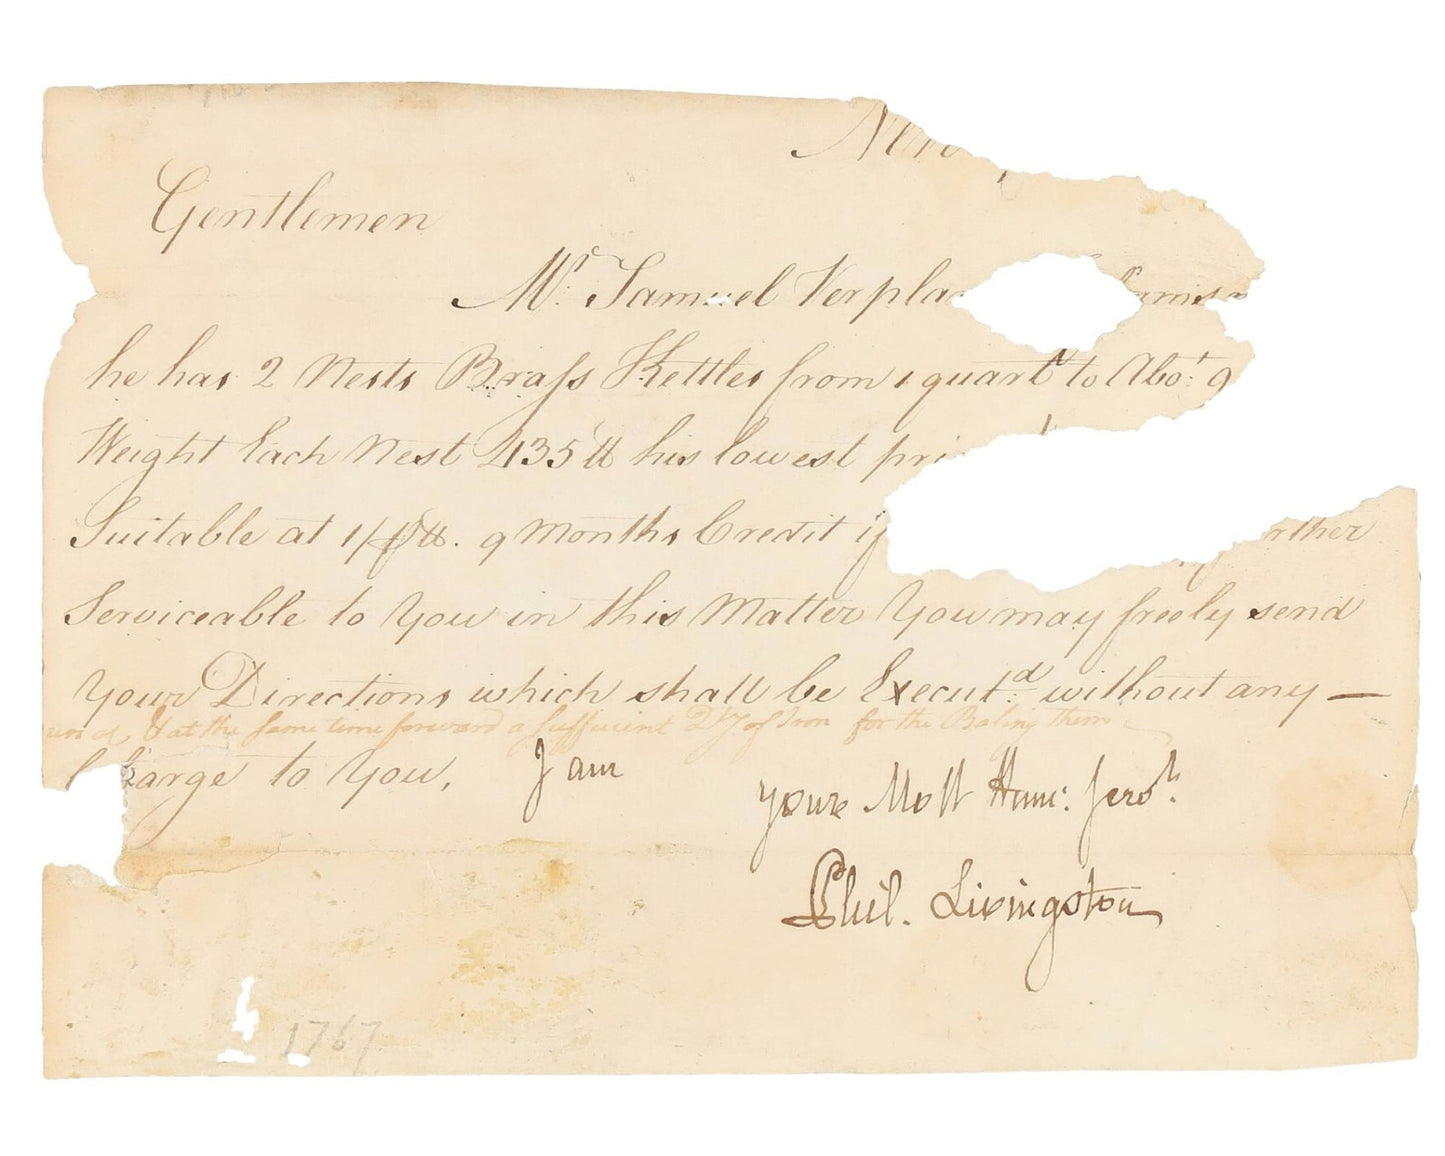 New
Gentlemen
Mr. Samuel Verpla
he has 2 Nests Brass Kettles from 1 quart to Abot. 9
Weight Each Nest 135 lb his lowest pri
Suitable at 9 Months Credit if rther
Serviceable to You in this Matter You may freely send
Your Directions which shall be Executd. without any —
& at the same time forward a sufficient Qty of Iron for the Baling them
harge to You, I am
your Most Hum: Servt.
Phil. Livingston
1767